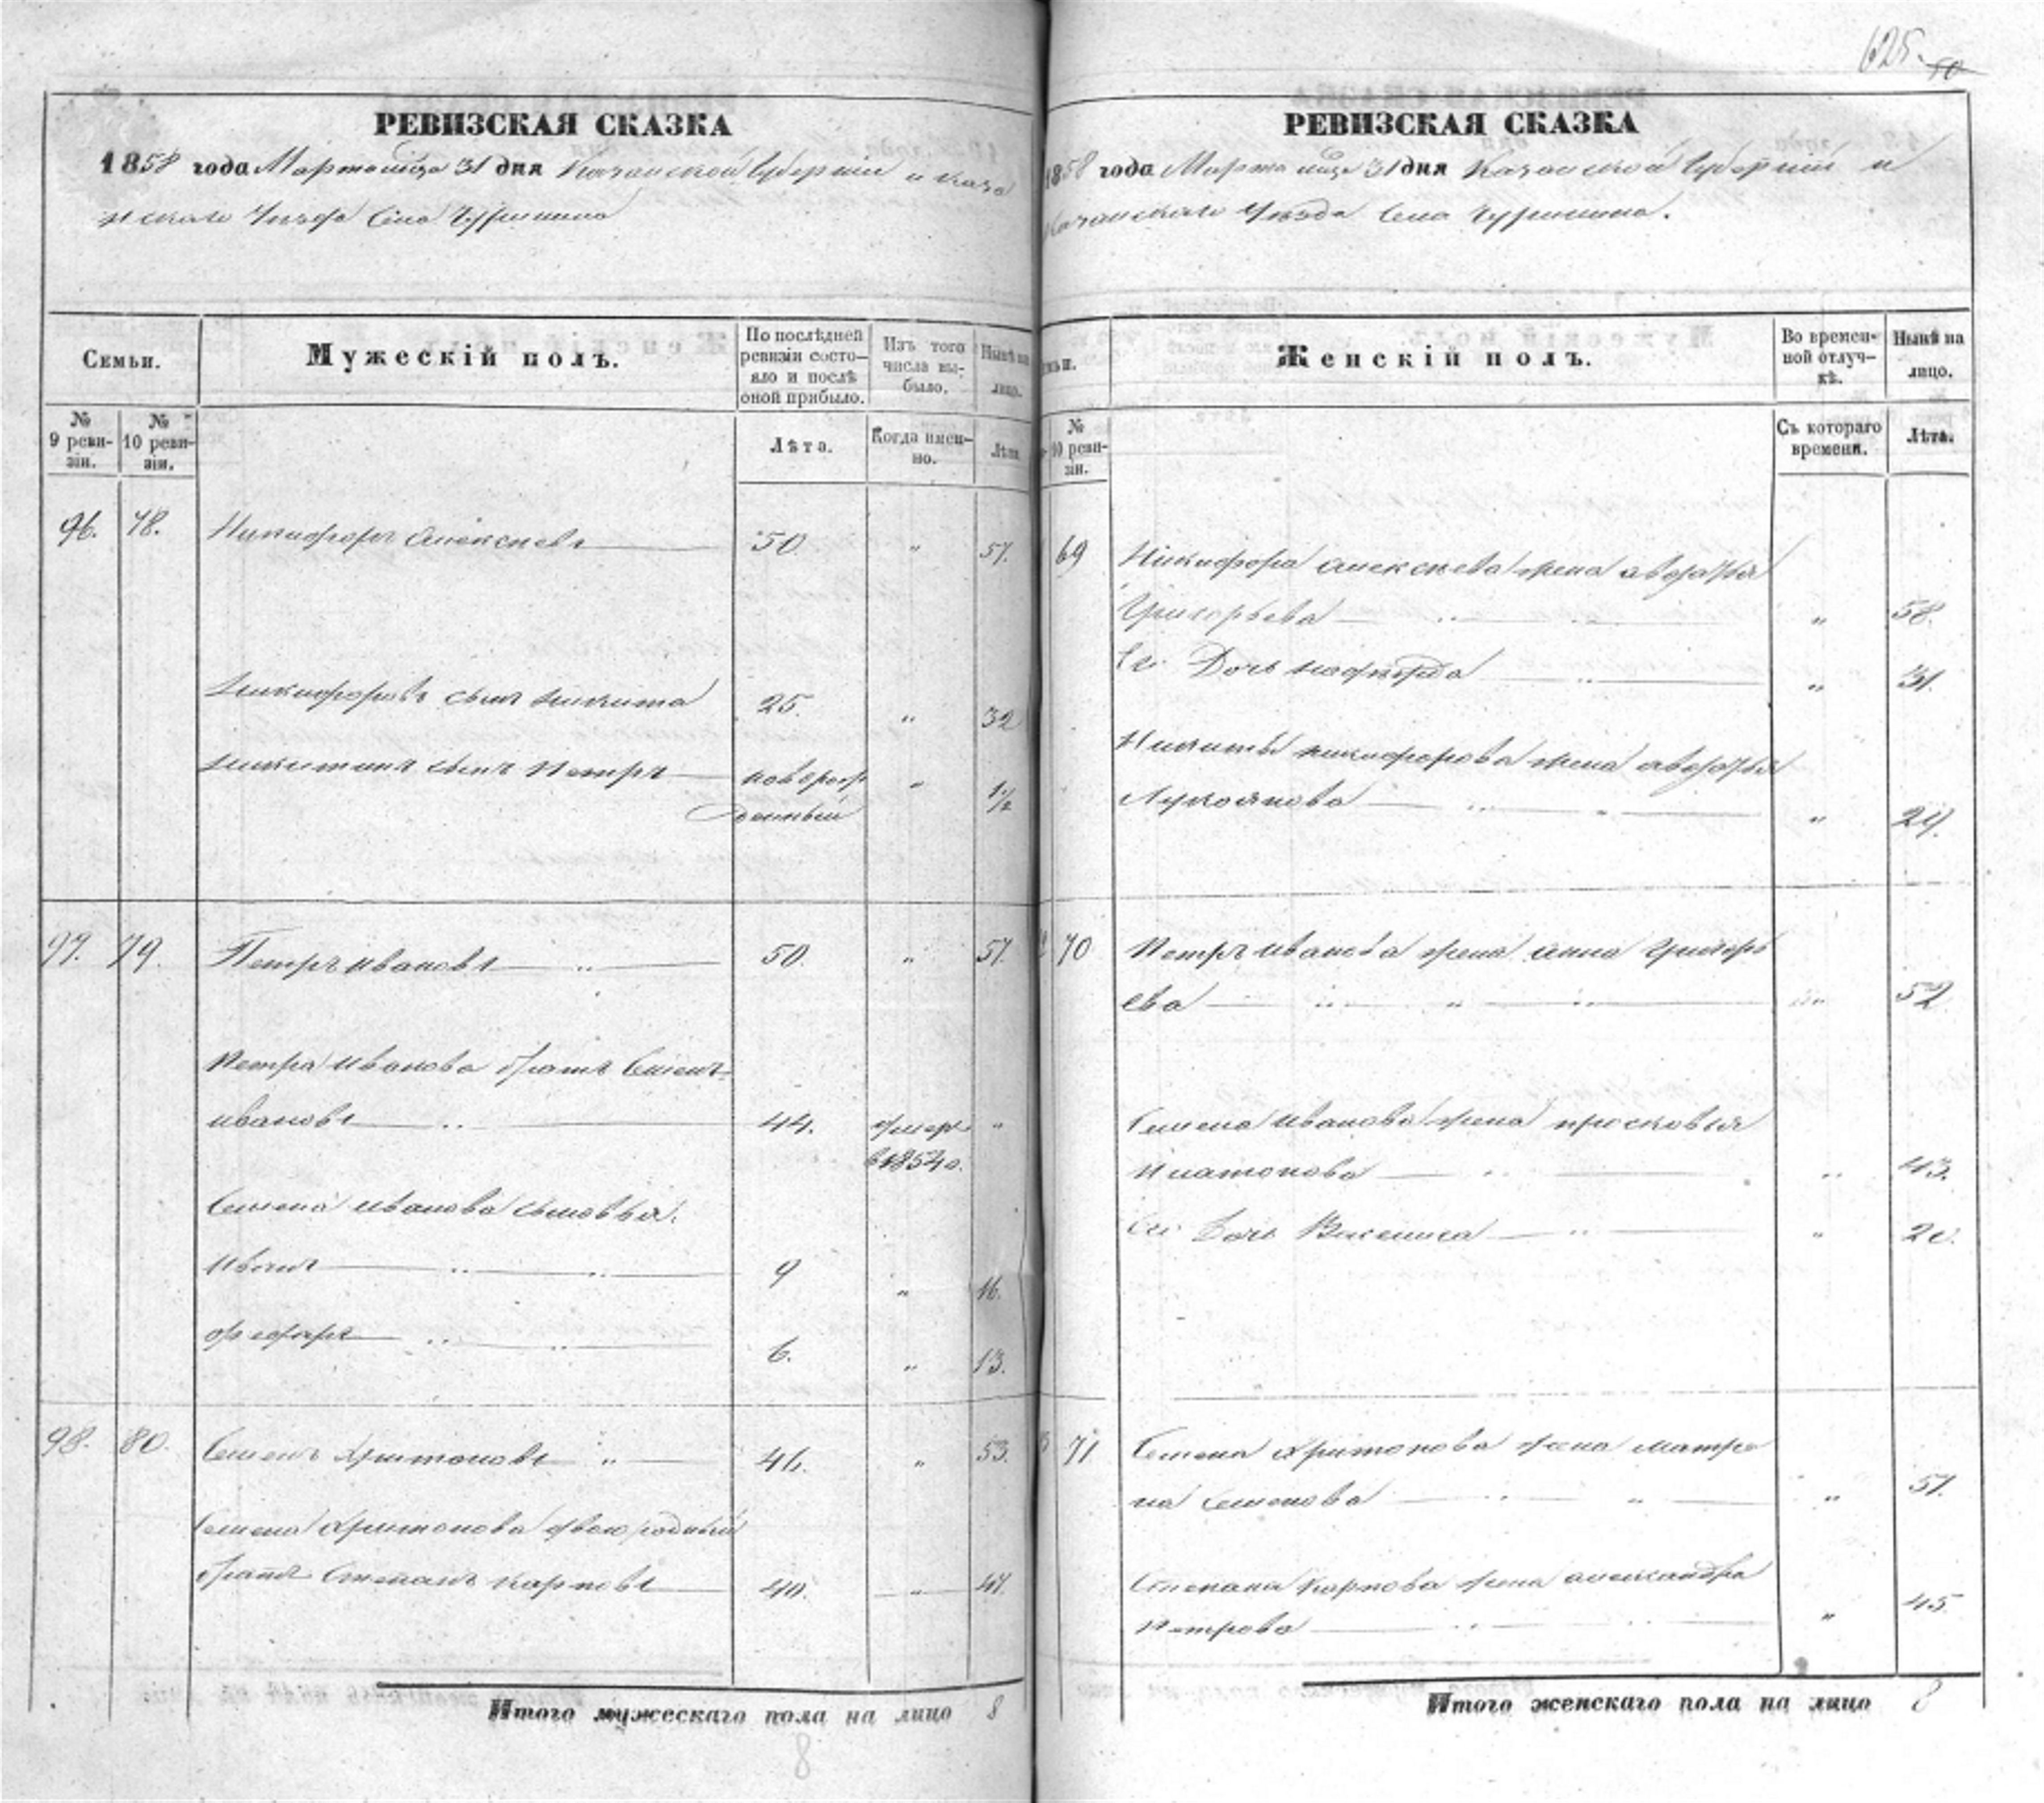 625. 50
РЕВИЗСКАЯ СКАЗКА
1858 года Марта мца 31 дня Казанской Губернiи и Каза
нскаго Уезда Села Чурилина
Семьи.
Мужескiй полъ.
По послѣдней ревизiи состо-яло и послѣ оной прибыло.
Изъ того числа вы-было.
Нынѣ на лицо.
№ 9 реви-зiи.
№ 10 реви-зiи.
Лѣта.
Когда имен-но.
Лѣта
96. 78. Никифоръ Алексѣевъ 50 " 57.
Никифоровъ сынъ Никита 25. " 32
Никитинъ сынъ Петръ новорож " 1/2
денный
97. 79. Петръ Ивановъ " 50. " 57.
Петра Иванова братъ Семенъ
Ивановъ " 44. умеръ "
в 1854 г.
Семена Иванова сыновья.
Иванъ " " 9 " 16.
Федоръ " " 6. " 13.
98. 80. Семенъ Харитоновъ " 46. " 53.
Семена Харитонова двоюродный
братъ Степанъ Карповъ 40. " 47.
Итого мужескаго пола на лицо 8
8
РЕВИЗСКАЯ СКАЗКА
1858 года Марта мца 31 дня Казанской Губернiи и
Казанскаго Уѣзда Села Чурилина.
Женскiй полъ.
Во времен-ной отлуч-кѣ.
Нынѣ на лицо.
№ 10 реви-зiи.
Съ котораго времени.
Лѣта.
69 Никифора Алексѣева жена Авдотья
Григорьева " " " 58.
Его Дочь " " 31.
Никиты Никифорова жена Авдотья
Лукоянова " " " 27.
70 Петръ Иванова жена Анна Григорь
ева " " " " 52
Семена Иванова жена Просковья
Платонова " " 43.
Его Дочь " " 20.
71 Семена Харитонова жена Матре
на Семенова " " " 57.
Степана Карпова жена Александра
Петрова " " " 45
Итого женскаго пола на лицо 8